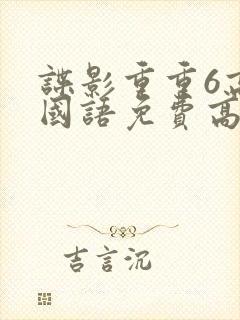 諜影重重6高
國語免費高
吉言沉